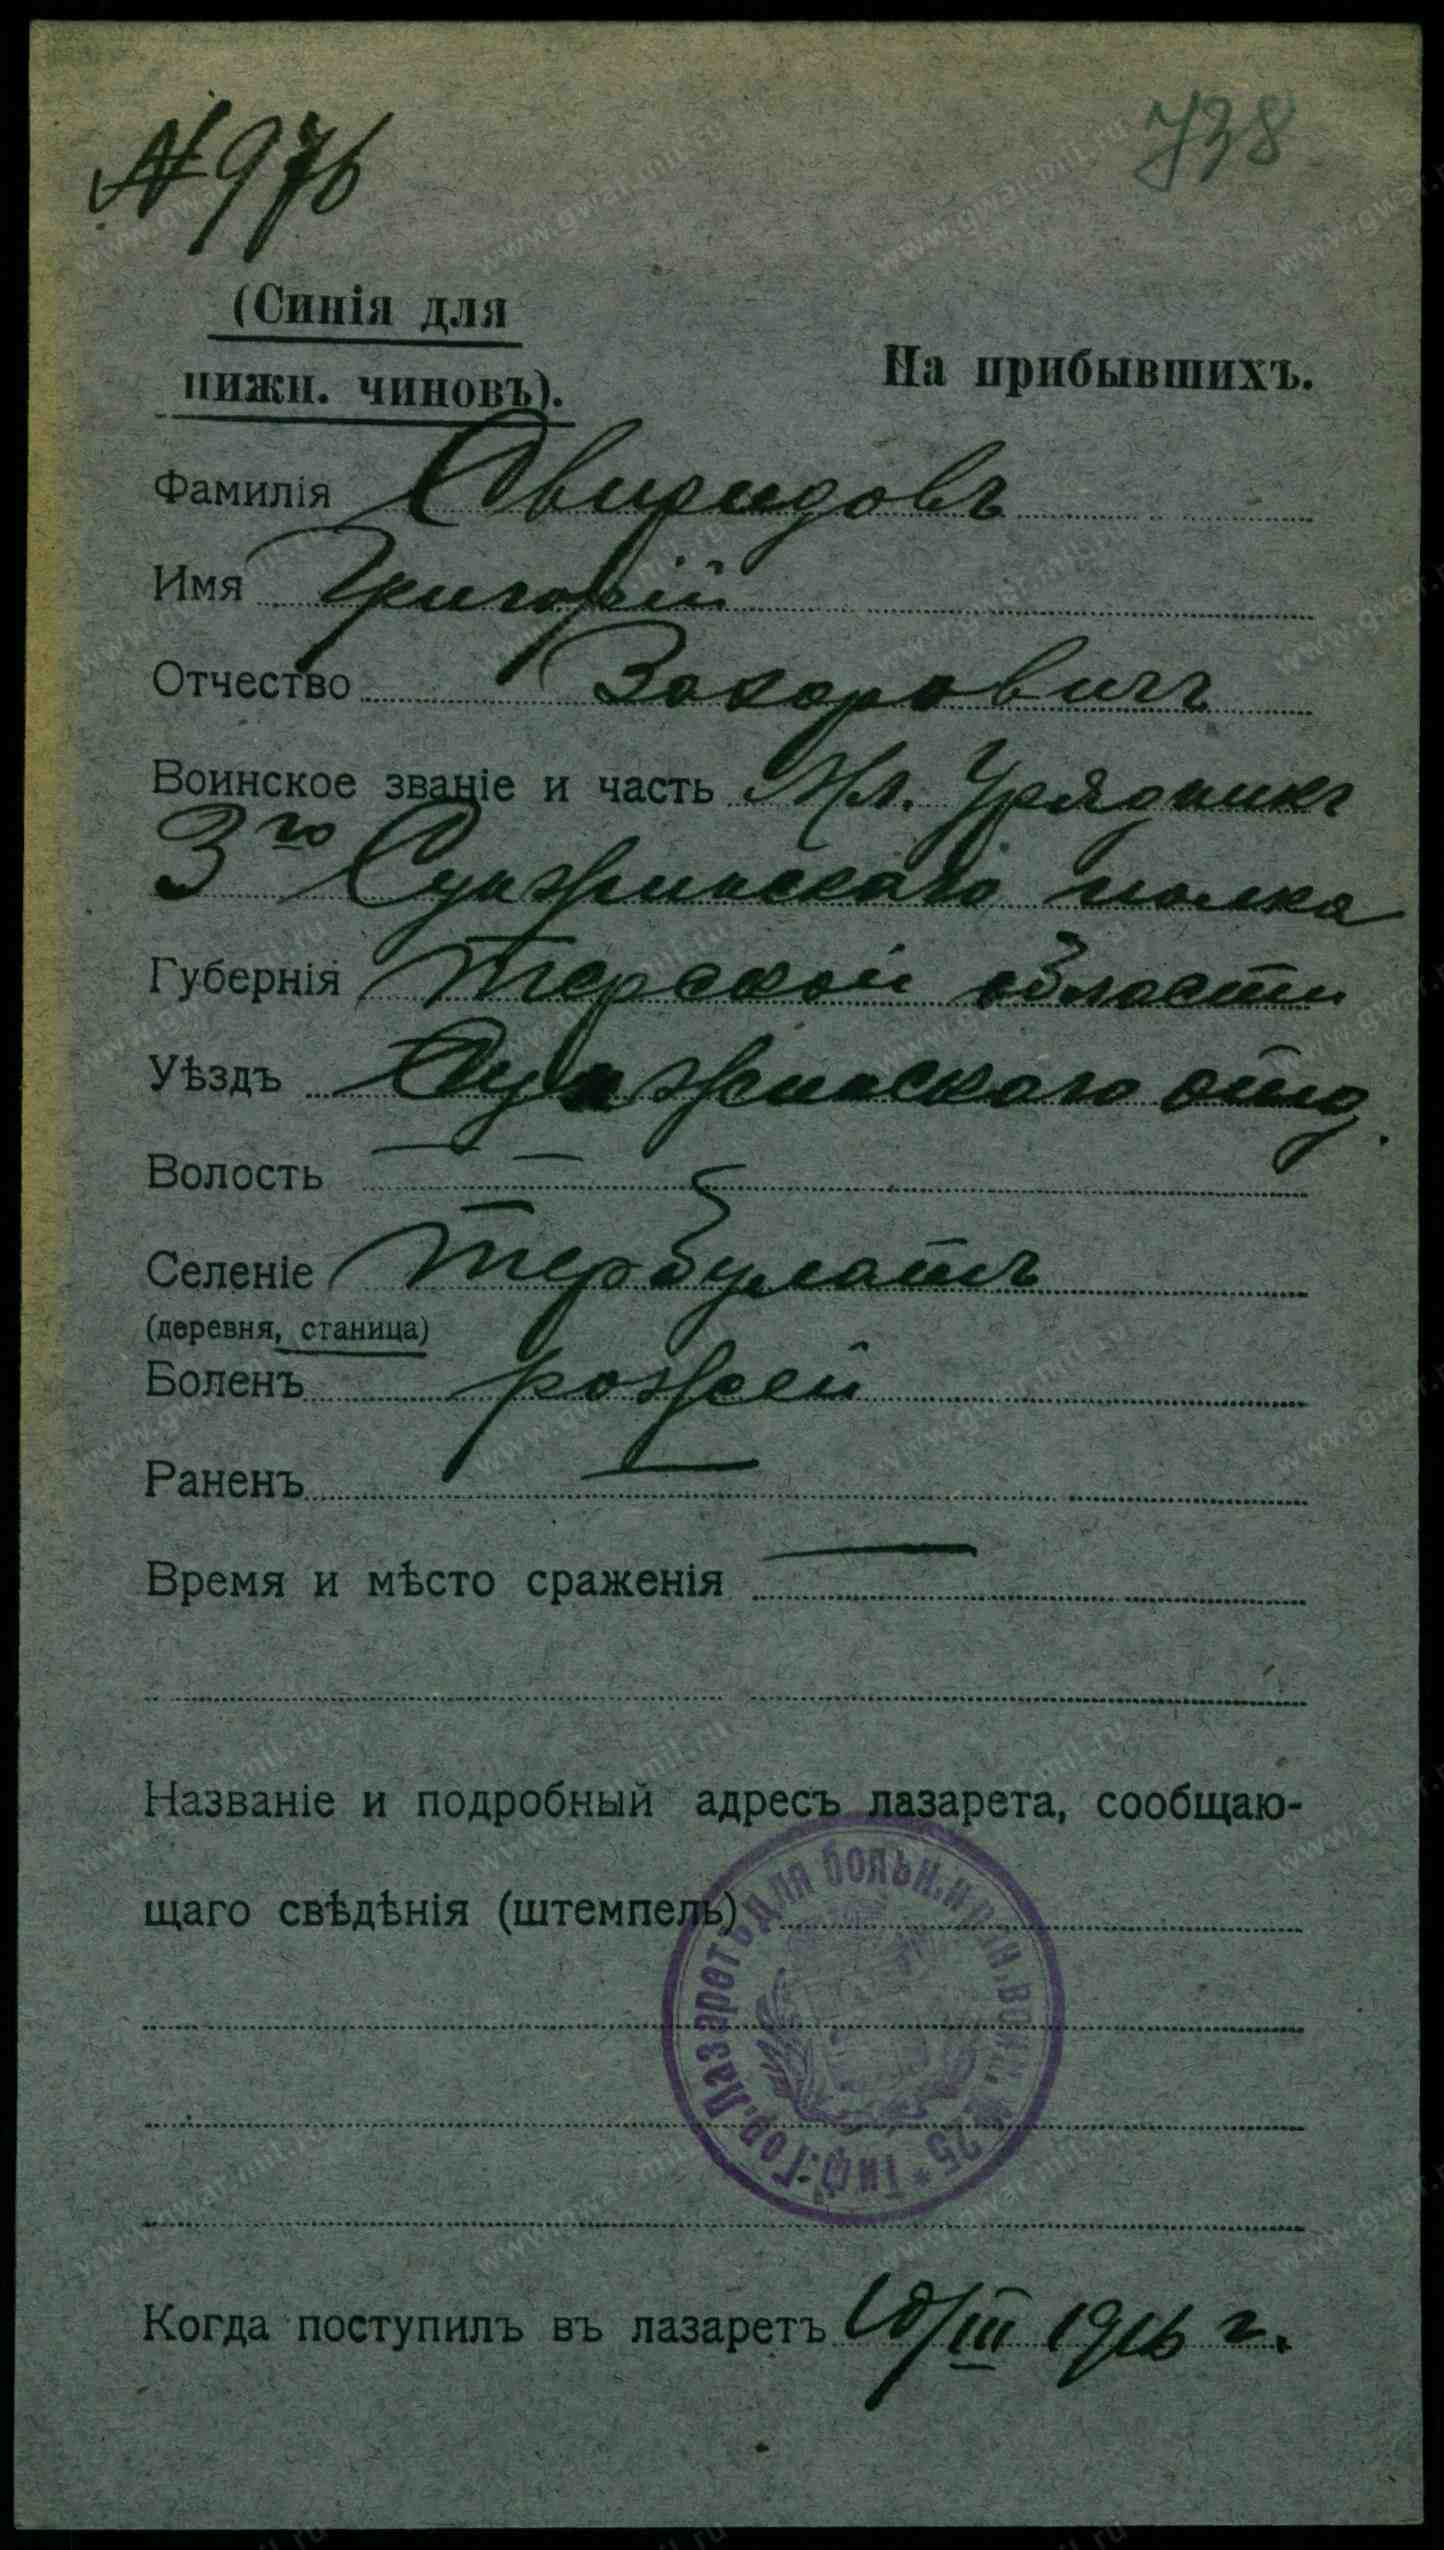 № 976
738
(Синія для
нижн. чиновъ).
На прибывшихъ.
Фамилія Свиридовъ
Имя Григорій
Отчество Захаровичъ
Воинское званіе и часть Мл. Урядникъ
3го Сунженскаго полка
Губернія Терской области
Уѣздъ Сунженскаго отд.
Волость —
Селеніе Тербулатъ
(деревня, станица)
Боленъ рожей
Раненъ —
Время и мѣсто сраженія —
Названіе и подробный адресъ лазарета, сообщаю-
щаго свѣдѣнія (штемпель)
Тиф. Гор. Лазаретъ для больн. и ран. воин. № 25 *
Когда поступилъ въ лазаретъ 10/III 1916 г.
www.gwar.mil.ru